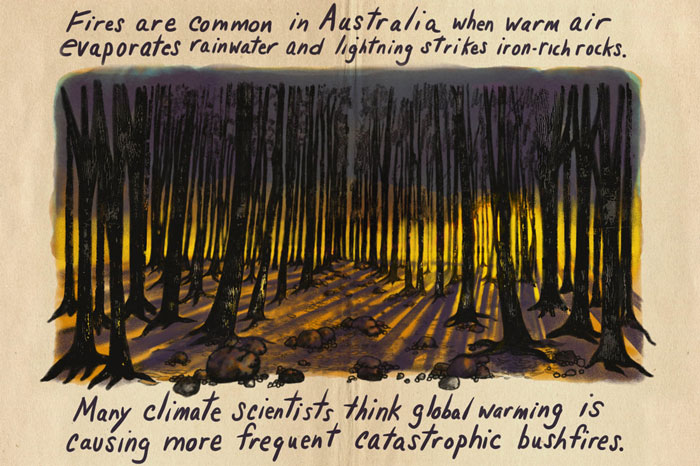 Fires are common in Australia when warm air
evaporates rainwater and lightning strikes iron-rich rocks.
Many climate scientists think global warming is
causing more frequent catastrophic bushfires.